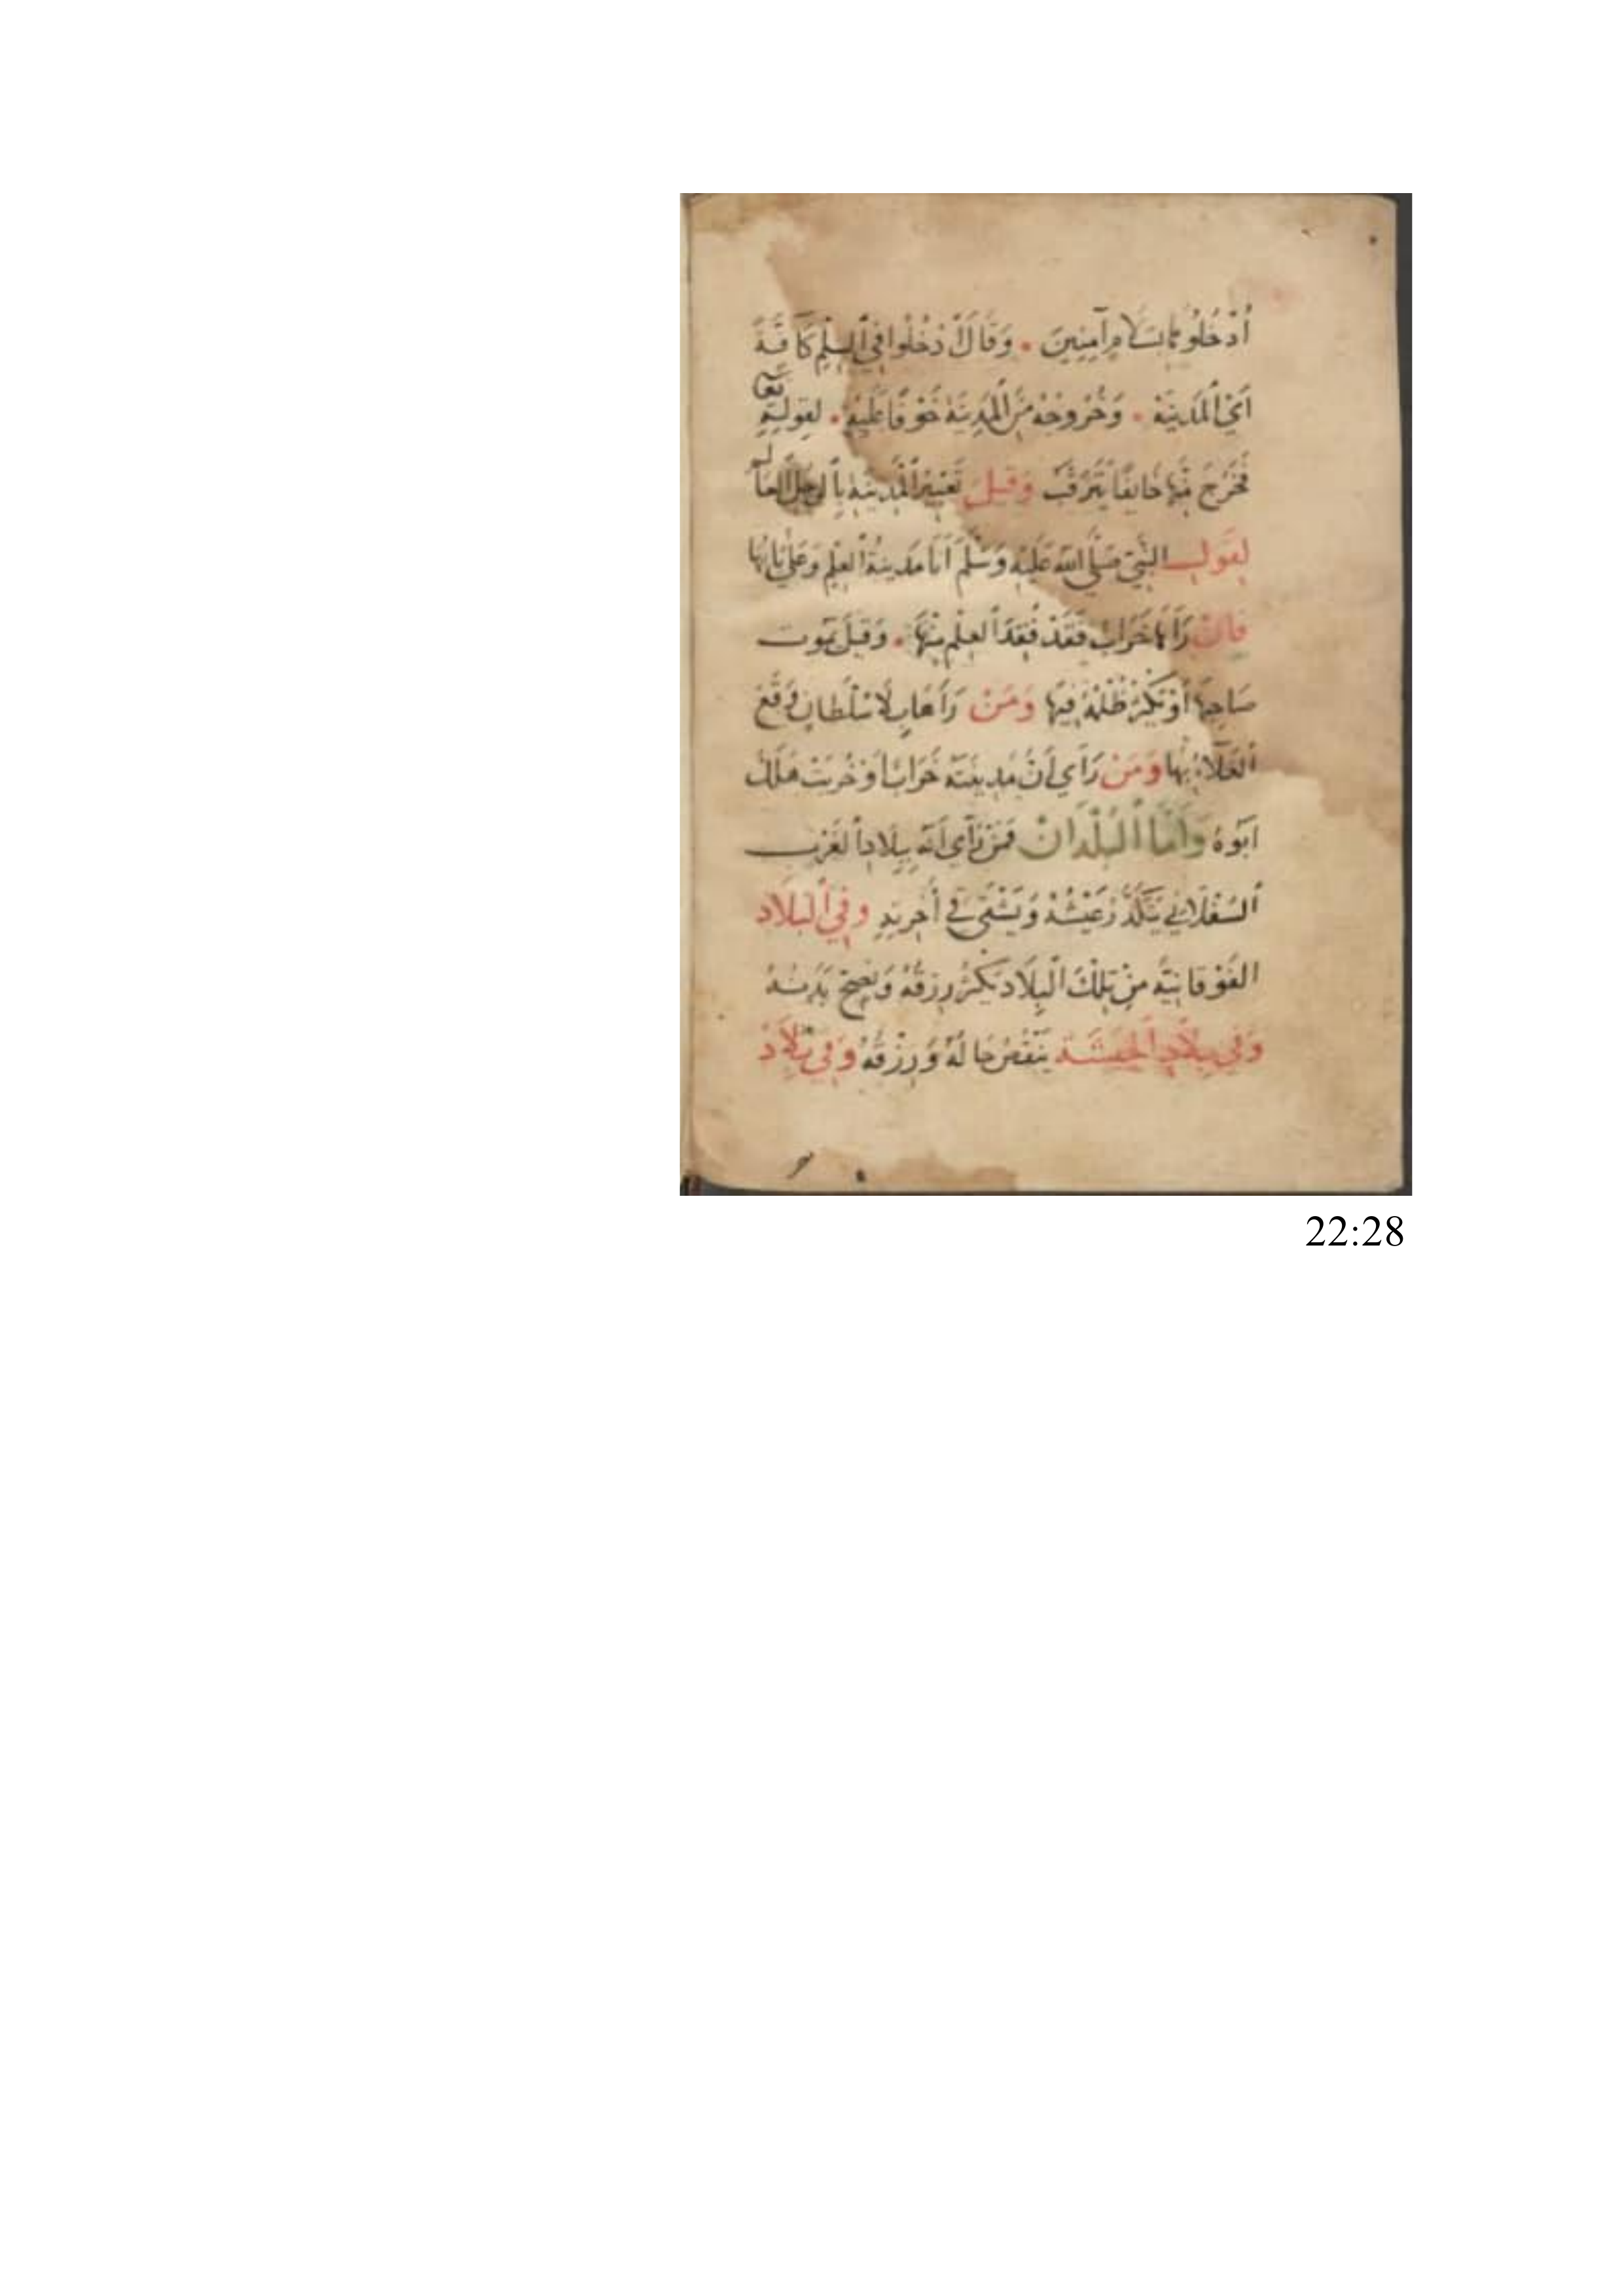 أُدْخُلُوهَا بِسَلَامٍ آمِنِينَ • وَقَالَ ادْخُلُوا فِي السِّلْمِ كَافَّةً
أَيْ الْمَدِينَةْ • وَخُرُوجُهُ مِنَ الْمَدِينَةْ خَوْفًا عَلَيْهِ • لِقَوْلِهِ تَعَا
فَخَرَجَ مِنْهَا خَايِفًا يَتَرَقَّبْ وَقِيلَ تَعْبِيرُ الْمَدِينَةِ بِالرَّجُلِ الْعَالِم
لِقَوْلِ النَّبِيّ صَلَّى اللّٰهُ عَلَيْهِ وَسَلَّمَ أَنَا مَدِينَةُ الْعِلْمِ وَعَلِيٌّ بَابُهَا
فَانْ رَآهَا خَرَابْ فَقَدْ فُقِدَ الْعِلْمُ مِنْهَا • وَقِيلَ يَمُوتْ
صَاحِبُهَا أَوْ يَكْثُرْ ظُلْمُهُ فِيهَا وَمَنْ رَآهَا بِلَا سُلْطَانٍ وَقَعَ
الْغَلَاءُ بِهَا وَمَنْ رَأَي أَنَّ مَدِينَتَهُ خَرَابًا أَوْ خَرِبَتْ هَلَكَ
أَبُوهُ وَأَمَّا الْبُلْدَانْ فَمَنْ رَأَي أَنَّهُ بِبِلَادِ الْغَرْبِ
السُّفْلَانِي يَتَكَدَّرُ عَيْشُهُ وَيَشْقَى فِي وَفِي الْبِلَادِ
الْفَوْقَانِيَّةِ مِنْ تِلْكَ الْبِلَادِ يَكْثُرُ رِزْقُهُ وَيَصِحّ بَدَنُهُ
وَفِي بِلَادِ الْحَبَشَةِ يَنْقُصُ حَالُهُ وَرِزْقُهُ وَفِي بِلَادْ
22:28